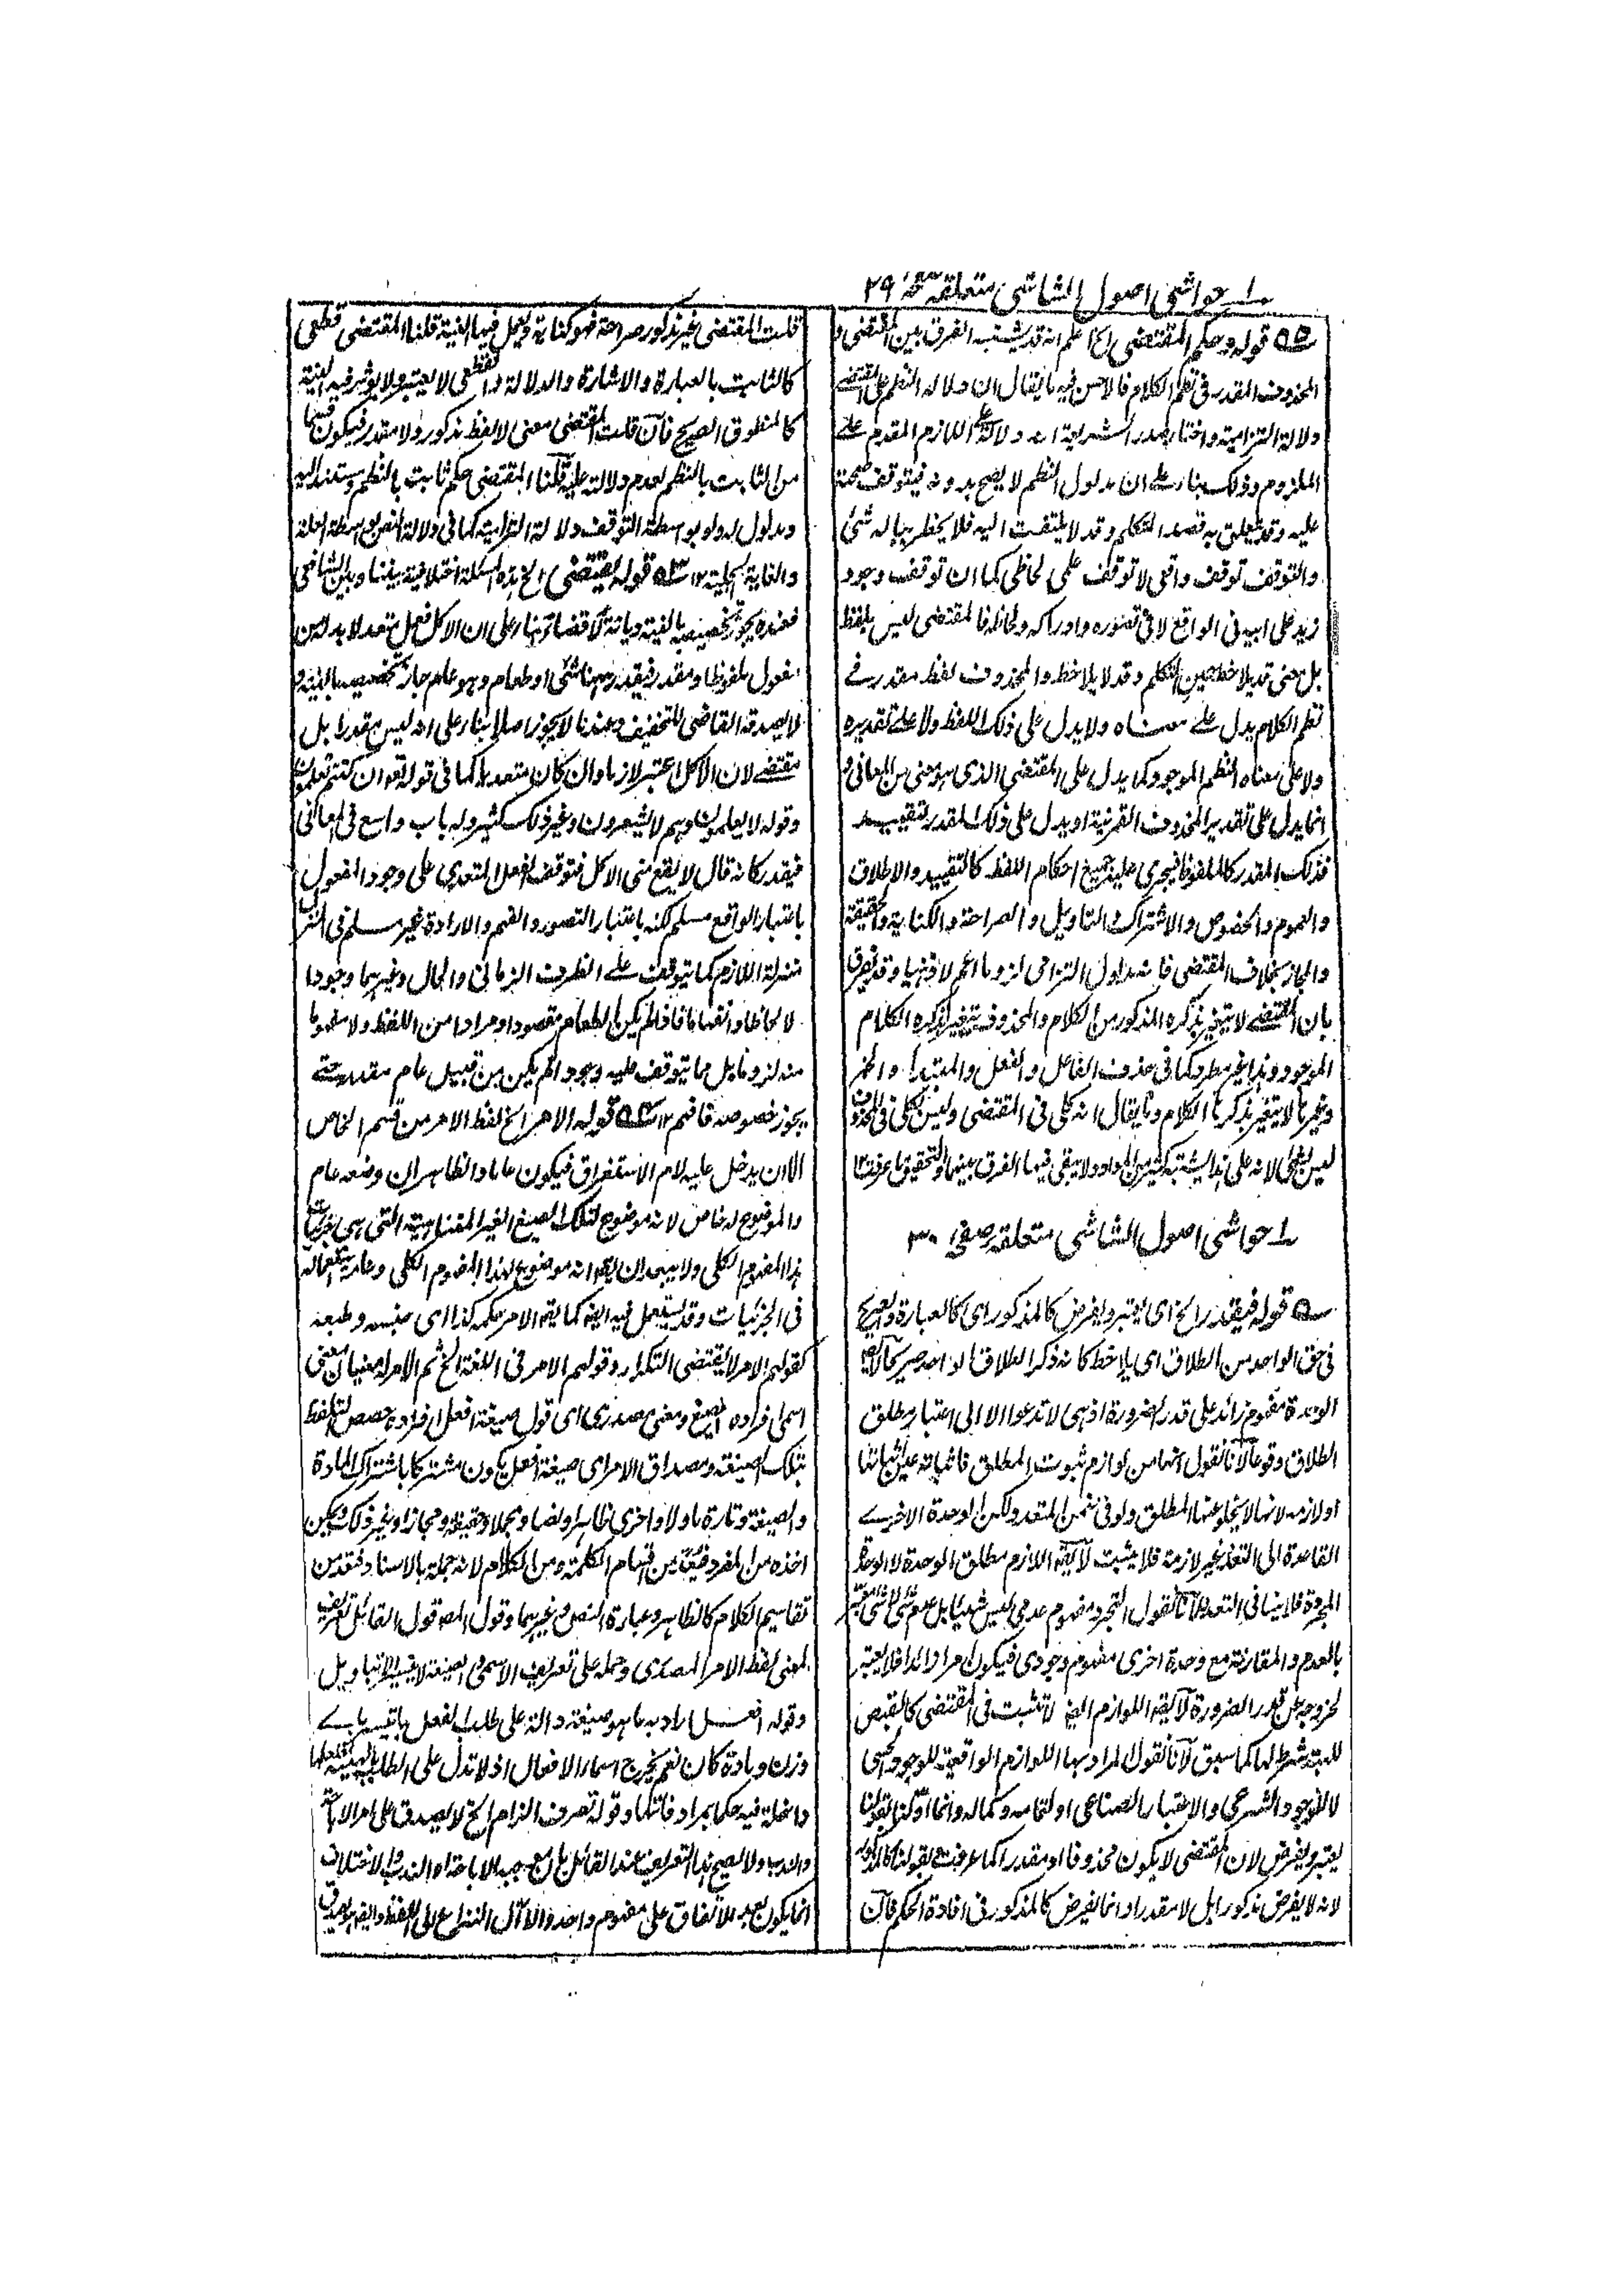 حواشی اصول الشاشی متعلقہ صفحہ ۲۹
قوله وحكم المقتضى الخ اعلم انه قد يشتبه الفرق بين المقتضى و
المحذوف المقدر فى نظم الكلام فالاحسن فيه ما يقال ان دلالة النظم على المقتضى
دلالة التزامية واختار صدر الشريعة انه دلالة اللازم المقدم على
الملزوم وذلك بناء على ان مدلول النظم لا يصح بدونه فيتوقف صحته
عليه وقد يتعلق به قصد المتكلم وقد لا يلتفت اليه فلا يخطر بباله شئ
والتوقف توقف واقعى لا توقف علمى لحاظى كما ان توقف وجود
زيد على ابيه فى الواقع لا فى تصوره وادراكه ولحاظه فالمقتضى ليس بلفظ
بل معنى قد يلاحظ حين التكلم وقد لا يلاحظ والمحذوف لفظ مقدر فى
نظم الكلام يدل على معناه ولا يدل على ذلك اللفظ ولا على تقديره
ولا على معناه النظم الموجود كما يدل على المقتضى الذى هو معنى من المعانى و
انما يدل على تقدير المحذوف القرينة او يدل على ذلك المقدر
فذلك المقدر كالملفوظ فيجرى عليه جميع احكام اللفظ كالتقييد والاطلاق
والعموم والخصوص والاشتراك والتاويل والصراحة والكناية والحقيقة
والمجاز بخلاف المقتضى فانه مدلول التزامى لزوما اعم لا ذهنيا وقد يفرق
بان المقتضى لا يتغير بذكره المذكور من الكلام والمحذوف يتغير بذكره الكلام
الموجود وهذا غير مطرد كما فى حذف الفاعل والفعل والمبتدأ والخبر
وغيرها لا يتغير بذكرها الكلام وما يقال انه كلى فى المقتضى وليس بكلى فى المحذوف
ليس بشئ لانه على هذا يشتبه كثير من المواد ولا يبقى فيها الفرق بينهما والتحقيق ما عرفت ۱۲
حواشی اصول الشاشی متعلقہ صفحہ ۳۰
قوله فيقدر الخ اى يعتبر ويفرض كالمذكور اى كالعبارة والصريح
فى حق الواحد من الطلاق اى يلاحظ كانه ذكر الطلاق
الوحدة مفهوم زائد على قدر الضرورة اذ هى لا تدعوا الا الى اعتبار مطلق
الطلاق وقوعا لانا نقول انها من لوازم ثبوت المطلق فاثباته عين اثباتها
او لازمه لانها لا يخلو عنها المطلق ولو فى ضمن المتعدد ولكن الوحدة الاخرى
القاصدة الى التعدد غير لازمة فلا يثبت لا يقال اللازم مطلق الوحدة لا الوحدة
المجردة فلا ينافى التعدد لانا نقول التجرد مفهوم عدمى ليس شيئا بل عدم شئ
بالعدم والمقارنة مع وحدة اخرى مفهوم وجودى فيكون امرا زائدا فلا يعتبر
لخروجه عن قدر الضرورة لا يقال اللوازم ايضا لا تثبت فى المقتضى كالقبض
للهبة شرط لها كما سبق لانا نقول المراد بها اللوازم الواقعية للوجود الحسى
لا للوجود الشرعى والاعتبار الصناعى او لتمامه وكماله وانما
يعتبر ويفرض لان المقتضى لا يكون محذوفا او مقدرا كما عرفت
لانه لا يفرض مذكورا بل لا مقدرا وانما يفرض كالمذكور فى افادة الحكم فان
قلت المقتضى غير مذكور صراحة فهو كناية ويعمل فيها النية قلنا المقتضى قطعى
كالثابت بالعبارة والاشارة والدلالة والقطعى لا يعتبر ولا يؤثر فيه النية
كالمنطوق الصريح فان قلت المقتضى معنى لا لفظ مذكور ولا مقدر فيكون
من الثابت بالنظم لعدم دلالته عليه قلنا المقتضى حكم ثابت بالنظم ومستند اليه
ومدلول له ولو بواسطة التوقف ودلالة التزامية كما فى دلالة النص بواسطة العلة
والغاية الجلية ۱۲ قوله المقتضى الخ هذه المسئلة اختلافية بيننا وبين الشافعى
فعنده يجوز تخصيصه بالنية ديانة لا قضاء بناء على ان الاكل فعل متعد لا بد له من
مفعول ملفوظ او مقدر فيقدر ههنا شئ او طعام وهو عام جاز تخصيصه بالنية و
لا يصدقه القاضى للتخفيف وعندنا لا يجوز اصلا بناء على انه ليس مقدرا بل
مقتضى لان الاكل اعتبر لازما وان كان متعديا كما فى قوله تعالى ان كنتم تعلمون
وقوله لا يعلمون وهم لا يشعرون وغير ذلك كثير وله باب واسع فى المعانى
فيقدر كانه قال لا يقع منى الاكل فتوقف الفعل المتعدى على وجود المفعول
باعتبار الواقع مسلم لكنه باعتبار التصور والفهم والارادة غير مسلم فى
منزلة اللازم كما يتوقف على الظرف الزمانى والحال وغيرهما وجودا
لا لحاظا وانفهاما فاذا لم يكن الطعام مقصودا ومرادا من اللفظ ولا مفهوما
منه لزوما بل مما يتوقف عليه وجودا لم يكن من قبيل عام مقدر حتى
يجوز خصوصه فافهم ۱۲ قوله الامر الخ لفظ الامر من قسم الخاص
الا ان يدخل عليه لام الاستغراق فيكون عاما والظاهر ان وضعه عام
والموضوع له خاص لانه موضوع لتلك الصيغ الغير المتناهية التى هى جزئيات
هذا المفهوم الكلى ولا يبعد ان يقال انه موضوع لهذا المفهوم الكلى
فى الجزئيات وقد يستعمل فيه ايضا كما يقال الامر حكمه كذا اى جنسه وطبعه
كقولهم الامر لا يقتضى التكرار وقولهم الامر فى اللغة الخ ثم الامر له معنيان معنى
اسمى افراده الصيغ ومعنى مصدرى اى قول صيغة افعل افراده حصص التلفظ
بتلك الصيغة ومصداق الامر اى صيغة افعل يكون مشتركا باشتراك المادة
والصيغة وتارة ماولا واخرى ظاهرا ونصا ومجملا وحقيقة ومجازا وغير ذلك ويمكن
اخذه من المفرد فيكون من اقسام الكلمة ومن الكلام لانه جملة بالاسناد فتعد من
تقاسيم الكلام كالظاهر وعبارة النص وغيرهما وقول المصنف قول القائل تعريف
لمعنى لفظ الامر المصدرى وحمله على تعريف الاسمى الصيغة
وقوله افعل اراد به ما هو صيغة دالة على طلب الفعل
وزن ومادة كان نعم يخرج اسماء الافعال اذ لا تدل على الطلب
داخلة فيه حكما وقوله تصرف الزام الخ لا يصدق على امر الاباحة
والندب ولا يصح هذا التعريف عند القائل
انما يكون بعد الاتفاق على مفهوم واحد والا آل النزاع الى اللفظ